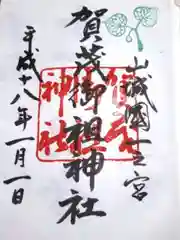 山城國一之宮
賀茂御祖神社
平成十八年一月一日
賀茂
神社